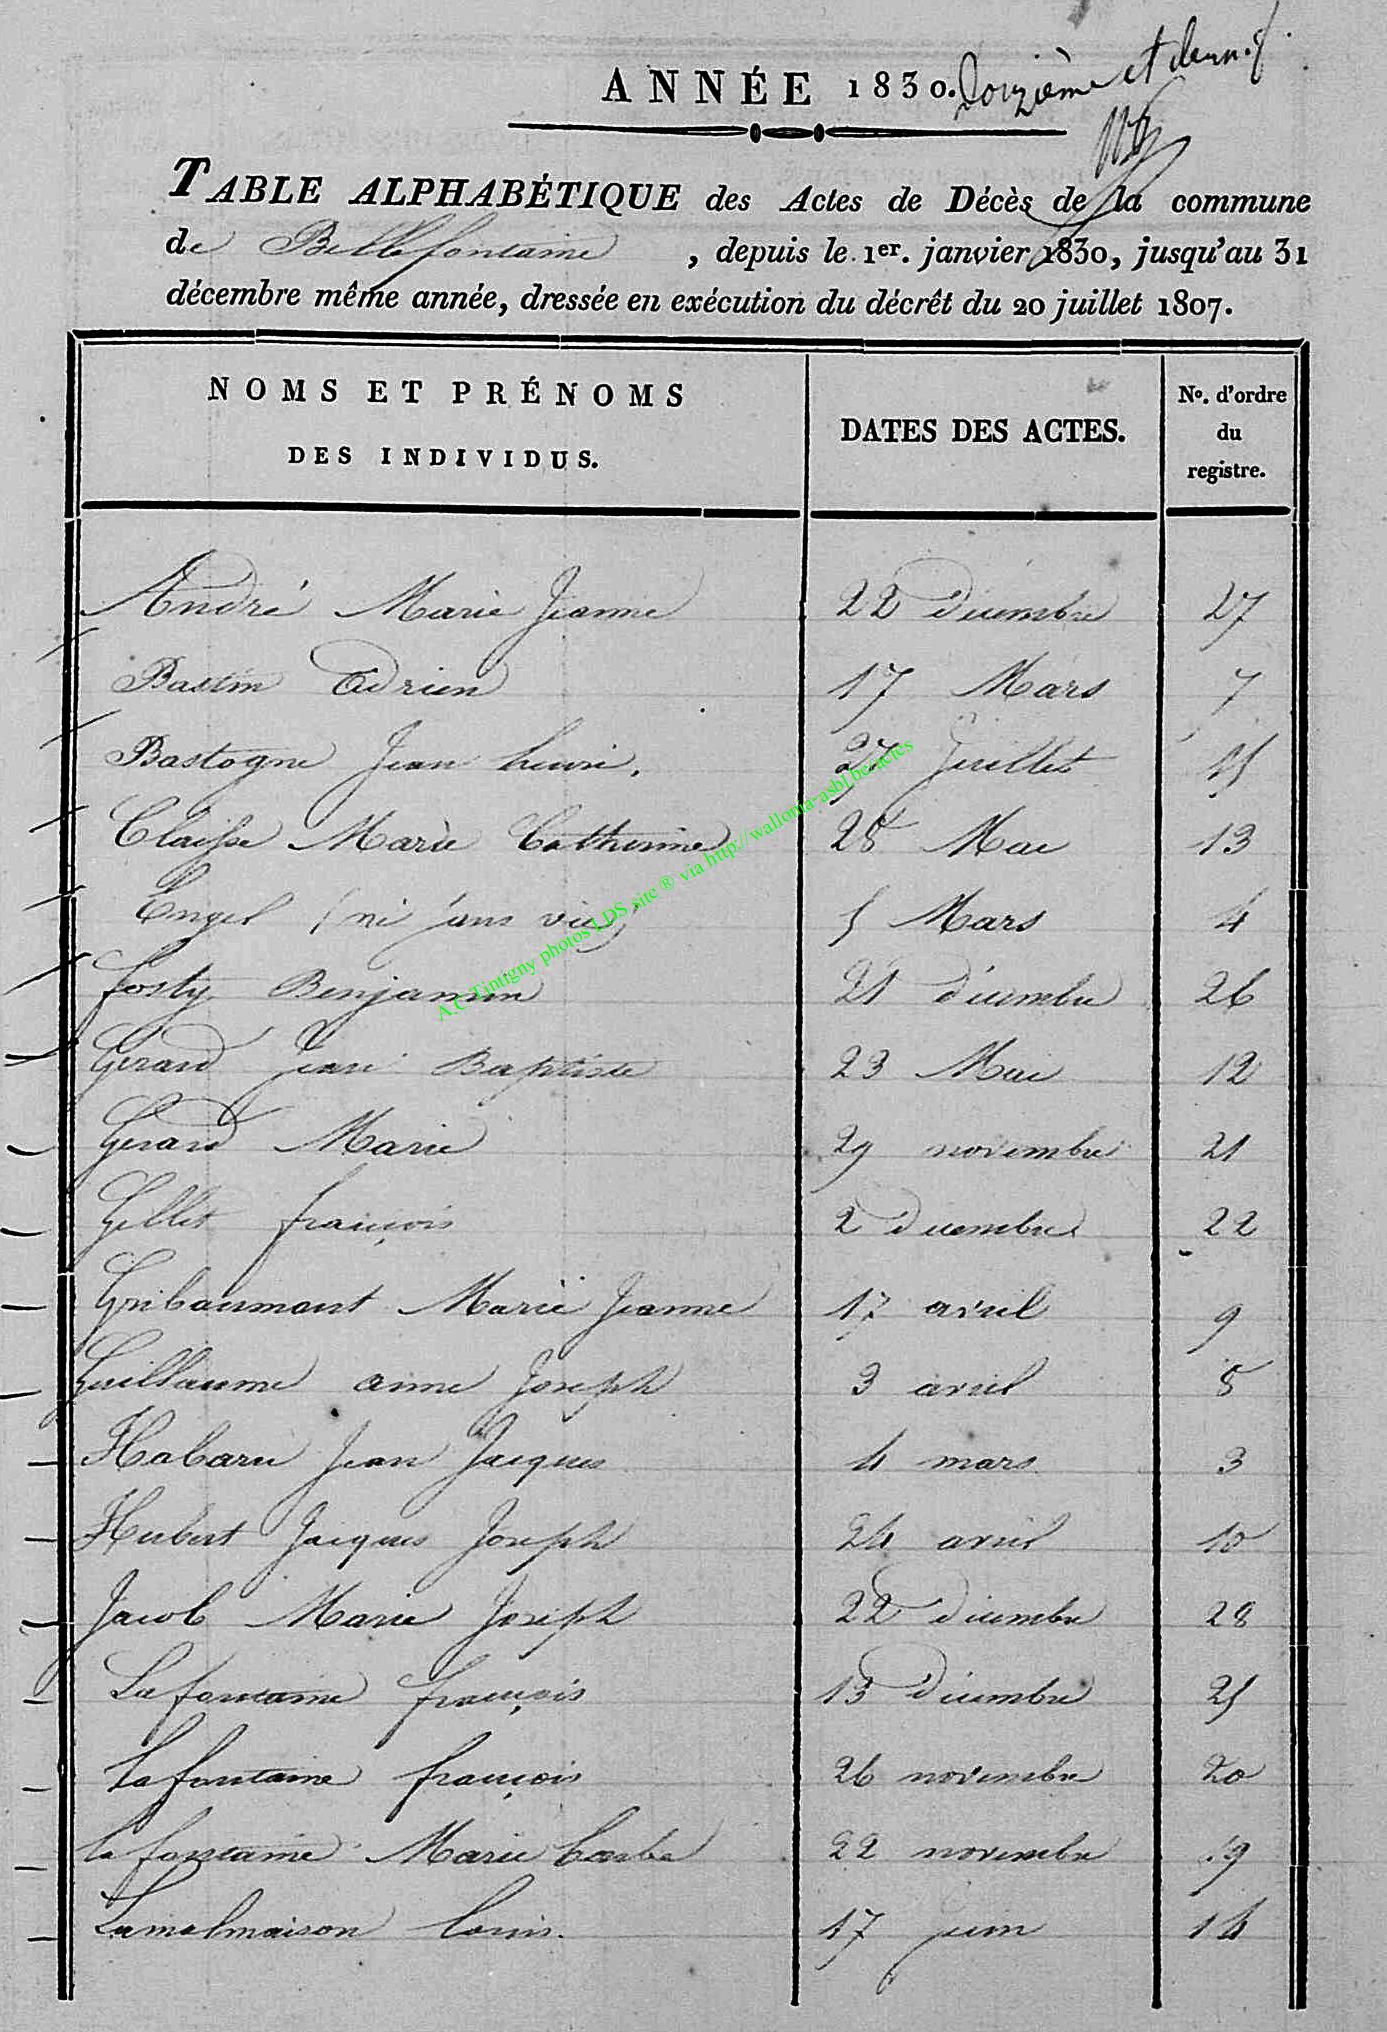 ANNÉE 1830. Douzième et dern.r
TABLE ALPHABÉTIQUE des Actes de Décès de la commune
de Bellefontaine , depuis le 1er. janvier 1830, jusqu'au 31
décembre même année, dressée en exécution du décrêt du 20 juillet 1807.
NOMS ET PRÉNOMS DES INDIVIDUS. DATES DES ACTES. No. d'ordre du registre.
André Marie Jeanne 22 Décembre 27
Bastin Adrien 17 Mars 7
Bastogne Jean henri. 27 Juillet 15
Claisse Marie Catherine 28 Mai 13
Engel (né sans vie) 5 Mars 4
fosty Benjamin 21 décembre 26
Gerard Jean Baptiste 23 Mai 12
Gerard Marie 29 novembre 21
Gillet françois 2 décembre 22
Gribaumont Marie Jeanne 17 avril 9
Guillaume anne Joseph 3 avril 8
Habaru Jean Jacques 4 mars 3
Hubert Jacques Joseph 24 avril 10
Jacob Marie Joseph 22 décembre 28
Lafontaine françois 13 décembre 25
Lafontaine françois 26 novembre 20
lafontaine Marie barbe 22 novembre 19
Lamalmaison louis. 17 juin 14
A.C. Tintigny photos LDS site ® via http://wallonia-asbl.be/actes